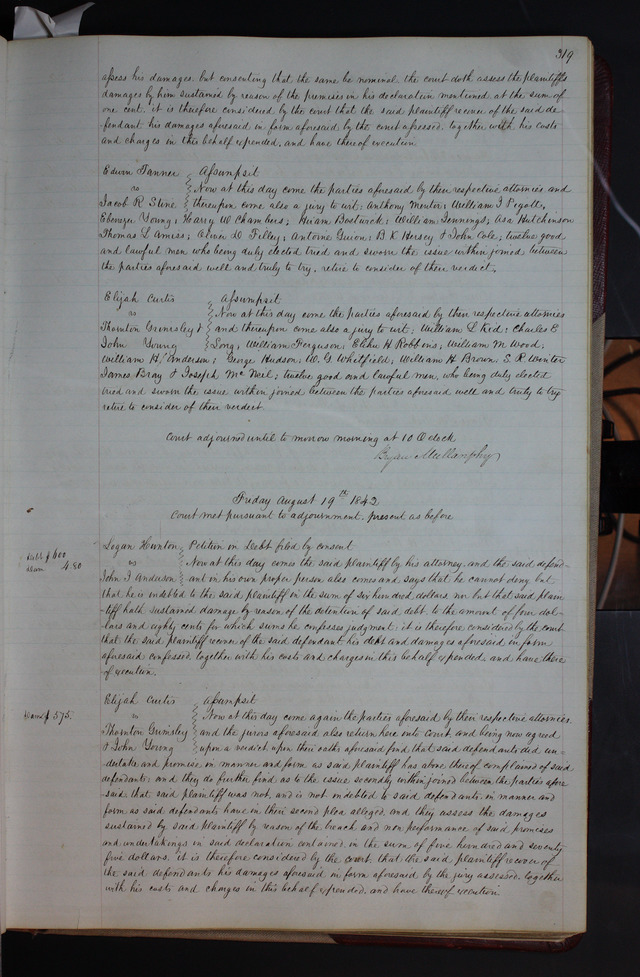 319
assess his damages. but consenting that the same be nominal the court doth assess the plaintiffs
damages by him sustained by reason of the premises in his declaration mentioned at the sum of
one cent. it is therefore considered by the court that the said plaintiff recover of the said de-
fendant his damages aforesaid in form aforesaid by the court assessed. together with his costs
and charges in this behalf expended. and have thereof execution
Edwin Tanner Assumpsit
vs Now at this day come the parties aforesaid by their respective attornies and
Jacob R Stine thereupon come also a jury to wit; Anthony Menter; William J
Ebenezer Young; Harry W Chambers; Hiram Bostwick; William Jennings; Asa Hutchinson
Thomas L Amiss; Oliver D Filley; Antoine Guion; B K Hersey & John Cole; twelve good
and lawful men who being duly elected tried and sworn the issue within joined between
the parties aforesaid well and truly to try. retire to consider of their verdict.
Elijah Curtis Assumpsit
vs Now at this day come the parties aforesaid by their respective attornies
Thornton Grimsley & and thereupon come also a jury to wit; William L Kid; Charles E
John Young William Ferguson; Elihu H Robbons; William M Wood;
William H Anderson; George Hudson; W. G Whitfield; William H Brown. S. R
James Bray & Joseph Mc Neil; twelve good and lawful men, who being duly elected
tried and sworn the issue within joined between the parties aforesaid well and truly to try
retire to consider of their verdict.
Court adjourned until to morrow morning at 10 O clock
Bryan Mullanphy
Friday August 19th 1842
Court met pursuant to adjournment. present as before
Logan Hunton Petition in Debt filed by consent
Debt $600
Dam 4.80
vs Now at this day comes the said plaintiff by his attorney, and the said defend-
John F Anderson ant in his own proper person also comes and says that he cannot deny but
that he is indebted to the said plaintiff in the sum of six hundred dollars nor but that said plain-
tiff hath sustained damage by reason of the detention of said debt. to the amount of four dol-
lars and eighty cents for which sums he confesses judgment; it is therefore considered by the court
that the said plaintiff recover of the said defendant his debt and damages aforesaid in form
aforesaid confessed. together with his costs and charges in this behalf expended. and have there
of execution.
Elijah Curtis Assumpsit
$575.
vs Now at this day come again the parties aforesaid by their respective attornies
Thornton Grimsley and the jurors aforesaid also return here into court. and being now agreed
& John Young upon a verdict upon their oaths aforesaid find that said defendants did un-
dertake and promise in manner and form as said plaintiff has above thereof complained of said
defendants; and they do further find. as to the issue secondly within joined between the parties afore-
said that said plaintiff was not, and is not indebted to said defendants in manner and
form as said defendants have in their second plea alleged, and they assess the damages
sustained by said plaintiff by reason of the breach and non performance of said promises
and undertakings in said declaration contained in the sum of five hundred and seventy
five dollars. it is therefore considered by the court that the said plaintiff recover of
the said defendants his damages aforesaid in form aforesaid by the jury assessed. together
with his costs and charges in this behalf expended. and have thereof execution